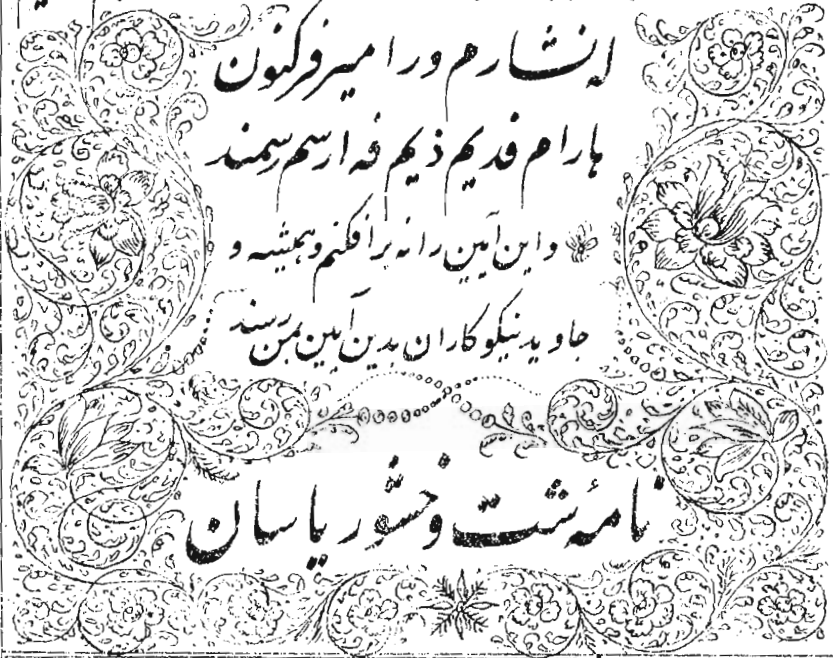 له نشارم ورا میر فرکنون
هارام قدیم ذیم فه ارسم رسمند
واین آیین را نه برافکنم و همیشه و
جاوید نیکوکاران بدین آیین بمن رسند
نامهٔ شت وخشور یاسان